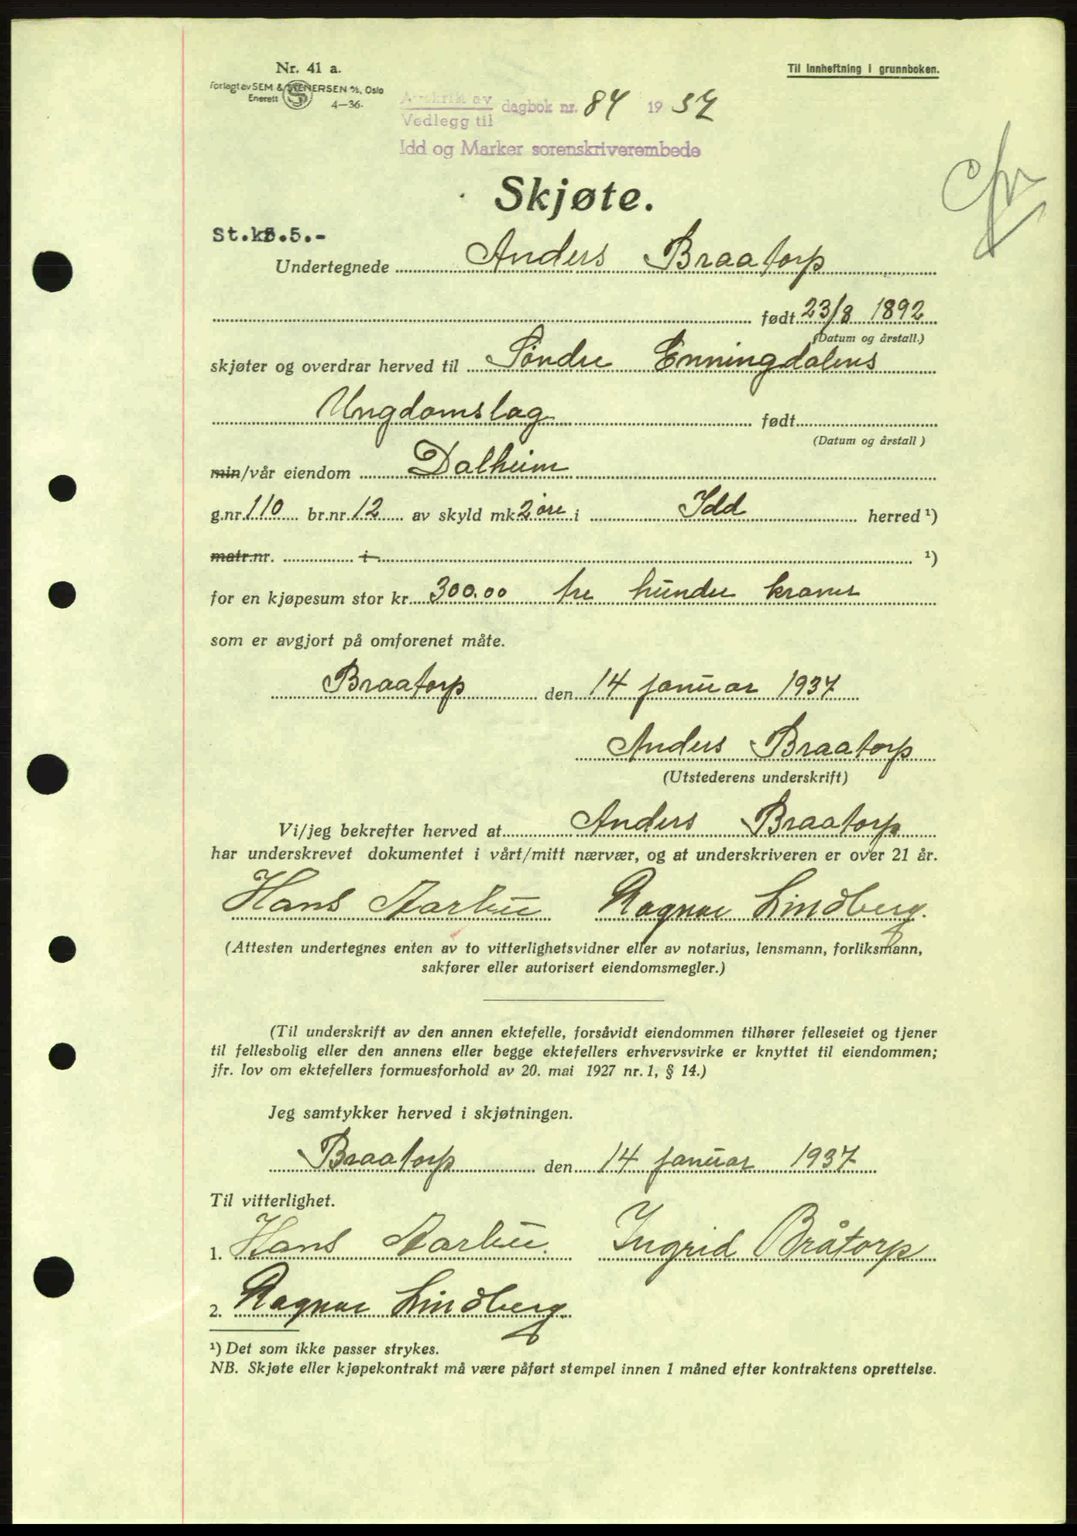 Nr. 41 a.
Til innheftning i grunnboken.
Forlagt av SEM & STENERSEN A/S, Oslo
Enerett 4—36.
Avskrift av
Vedlegg til dagbok nr. 84 1937
Idd og Marker sorenskriverembede
Skjøte.
St.kr.5.-
Undertegnede Anders Braatorp
født 23/8 1892
(Datum og årstall.)
skjøter og overdrar herved til Søndre Enningdalens
Ungdomslag født
(Datum og årstall)
min/vår eiendom Dalheim
g.nr. 110 br.nr. 12 av skyld mk 2 øre i Idd herred ¹)
matr.nr. i ¹)
for en kjøpesum stor kr. 300.00 tre hundre kroner
som er avgjort på omforenet måte.
Braatorp den 14 januar 1937
Anders Braatorp
(Utstederens underskrift)
Vi/jeg bekrefter herved at Anders Braatorp
har underskrevet dokumentet i vårt/mitt nærvær, og at underskriveren er over 21 år.
Hans Aarbu Ragnar Lindberg.
(Attesten undertegnes enten av to vitterlighetsvidner eller av notarius, lensmann, forliksmann,
sakfører eller autorisert eiendomsmegler.)
(Til underskrift av den annen ektefelle, forsåvidt eiendommen tilhører felleseiet og tjener
til fellesbolig eller den annens eller begge ektefellers erhvervsvirke er knyttet til eiendommen;
jfr. lov om ektefellers formuesforhold av 20. mai 1927 nr. 1, § 14.)
Jeg samtykker herved i skjøtningen.
Braatorp den 14 januar 1937
Til vitterlighet.
1. Hans Aarbu. Ingrid Bråtorp
2. Ragnar Lindberg.
¹) Det som ikke passer strykes.
NB. Skjøte eller kjøpekontrakt må være påført stempel innen 1 måned efter kontraktens oprettelse.